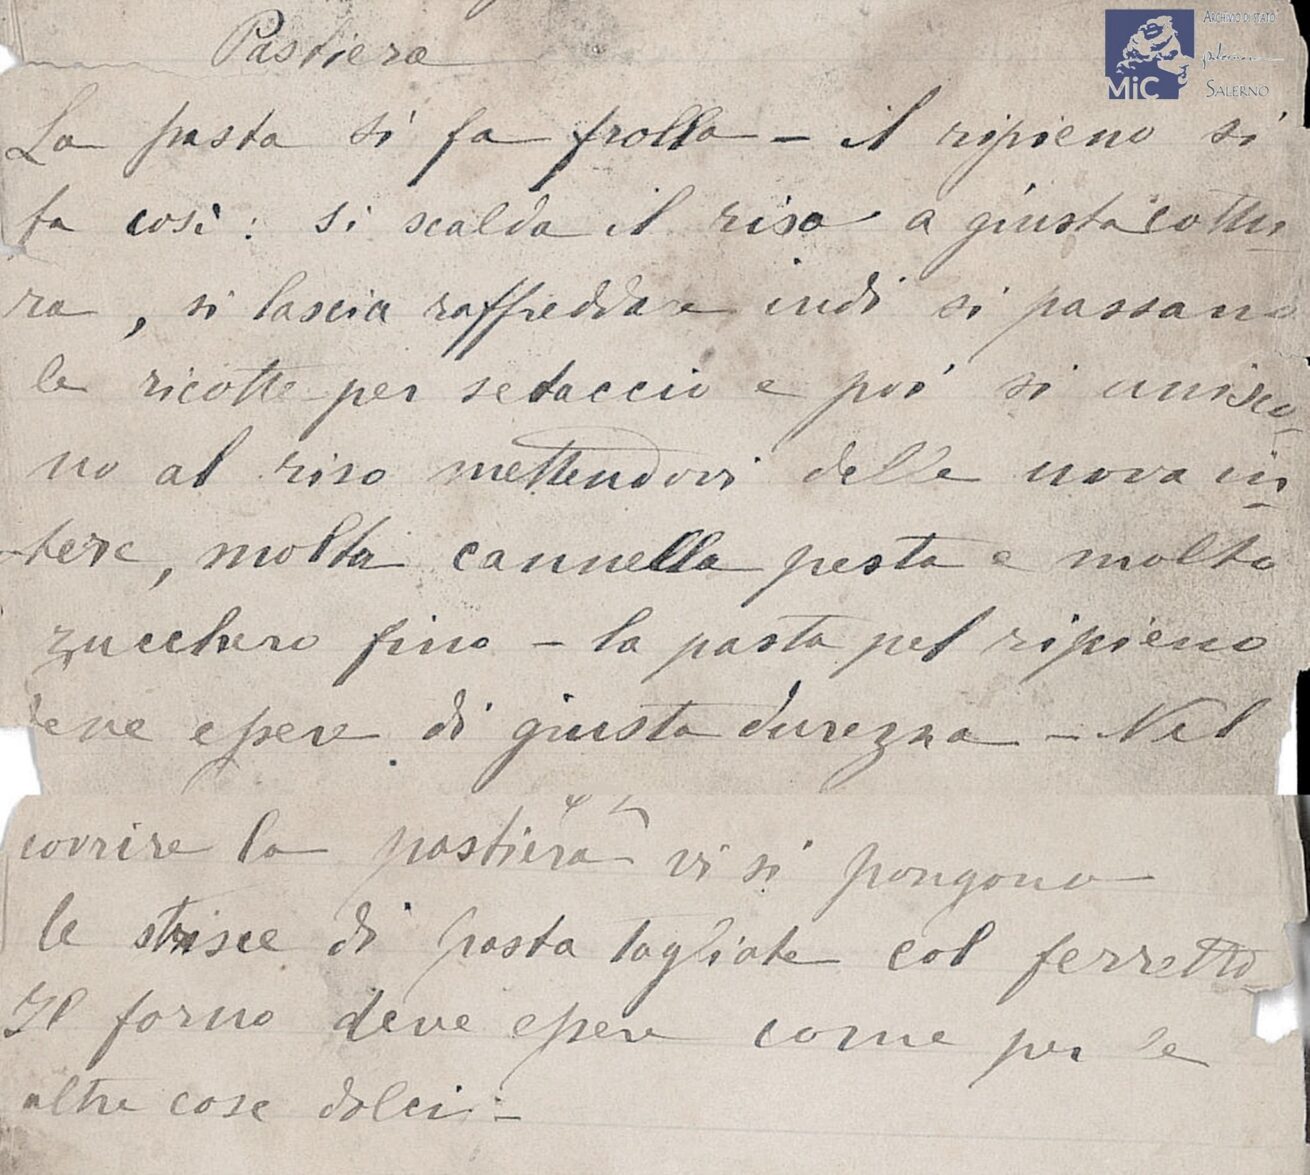 Pastiera
La pasta si fa frolla – il ripieno si
fa così: si scalda il riso a giusta cottu-
ra, si lascia raffreddare indi si passano
le ricotte per setaccio e poi si unisco-
no al riso mettendovi delle uova in-
tere, molta cannella pesta e molto
zucchero fino – la pasta pel ripieno
deve essere di giusta durezza – Nel
covrire la pastiera vi si pongono
le strisce di pasta tagliate col ferretto
Il forno deve essere come per le
altre cose dolci –
MiC
ARCHIVIO DI STATO
SALERNO